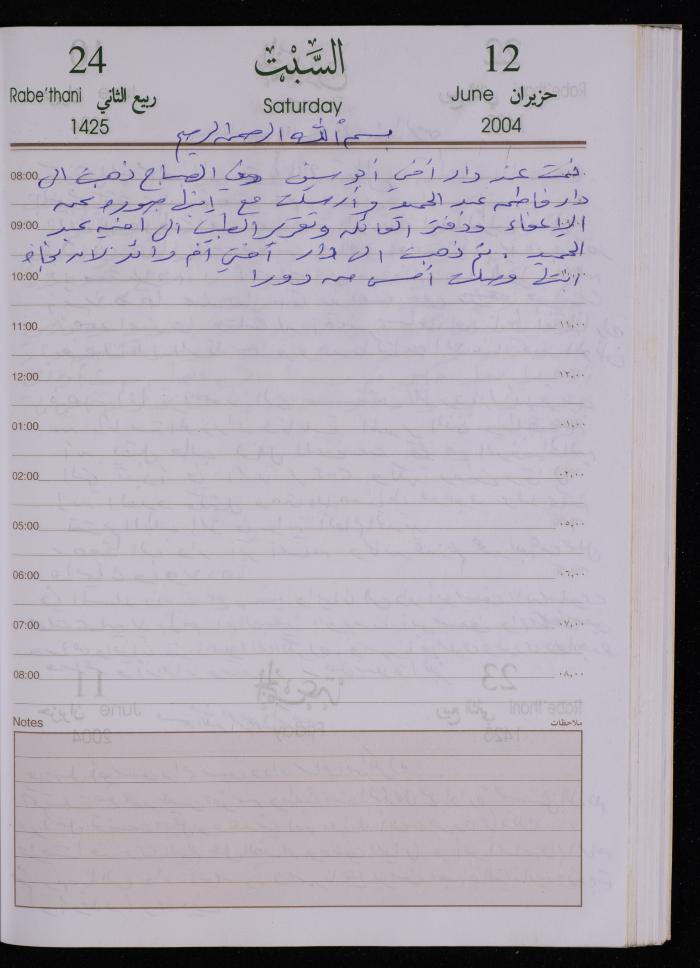 24 السَّبْت 12
Rabe'thani ربيع الثاني Saturday June حزيران
1425 2004
بسم الله الرحمن الرحيم
08:00 نمت عند دار أختي أم وسيق وفي الصباح ذهبت الى
دار فاطمه عبد الحميد وأرسلت مع صوره عن
09:00 الإعفاء ودفتر العائله وتقرير الطبيب الى أخيه عبد
الحميد . ثم ذهبت الى دار أختي أم رائد لأن نجاح
10:00 ابنتي وصلت أمس من دورا
11:00 ١١,٠٠
12:00 ١٢,٠٠
01:00 ٠١,٠٠
02:00 ٠٢,٠٠
05:00 ٠٥,٠٠
06:00 ٠٦,٠٠
07:00 ٠٧,٠٠
08:00 ٠٨,٠٠
Notes ملاحظات